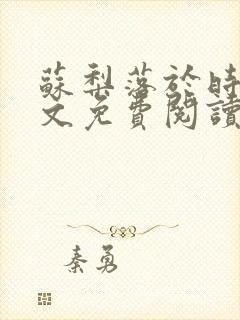 蘇梨落於時
文免費閱讀
秦勇